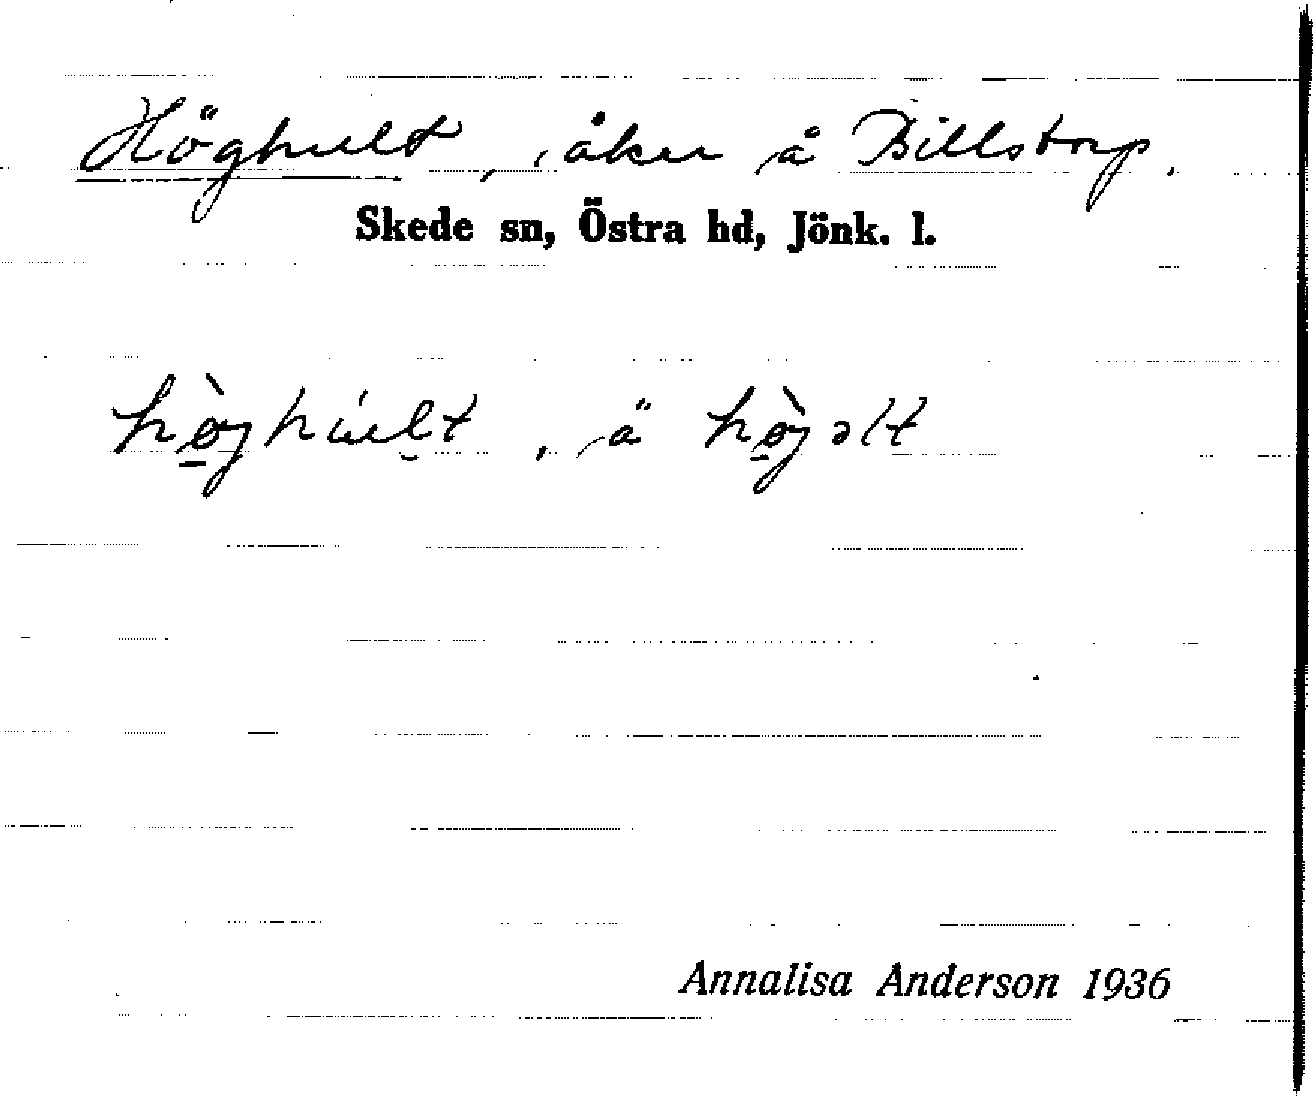 Höghult, åker å Billstorp.
Skede sn, Östra hd, Jönk. l.
hø̠̀ghúlt, å hø̠̀gəlt
Annalisa Anderson 1936